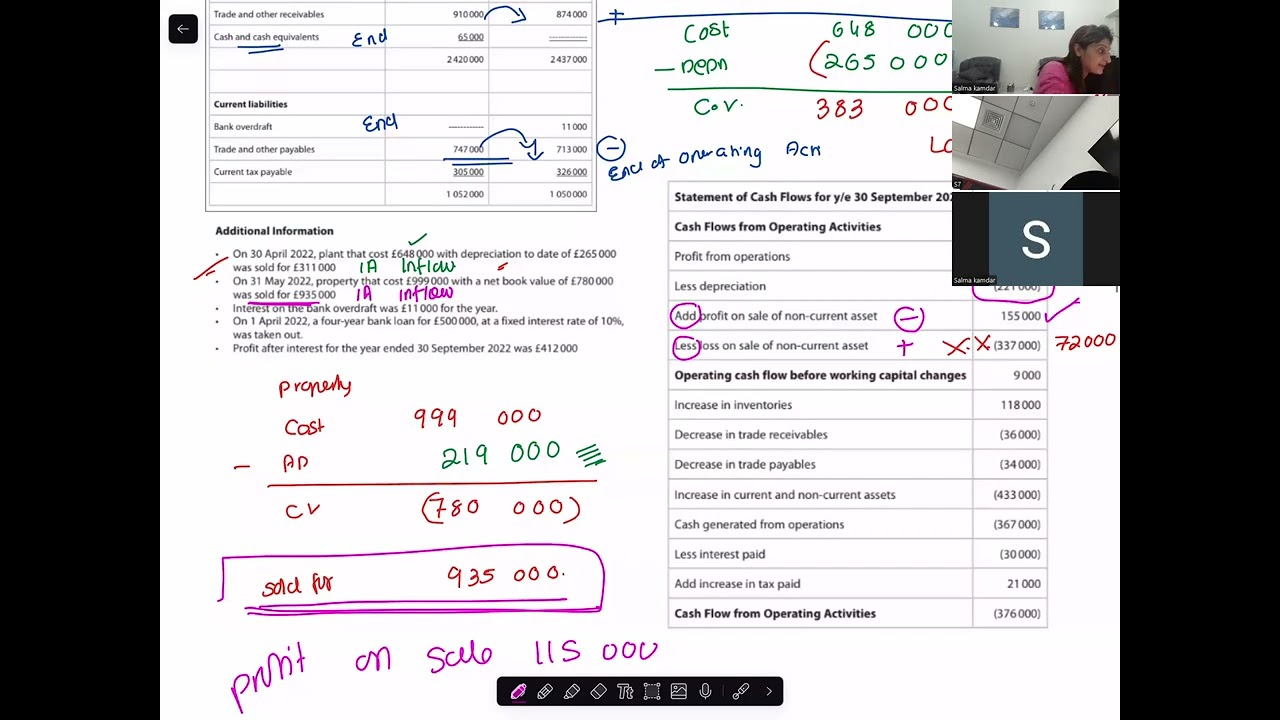 Trade and other receivables 910 000 874 000
Cash and cash equivalents End 65 000 ------------
2 420 000 2 437 000
Current liabilities
Bank overdraft End ------------ 11 000
Trade and other payables 747 000 713 000
Current tax payable 305 000 326 000
1 052 000 1 050 000
+
Cost 648 000
– Depn (265 000
C.V. 383 000
–
End of operating Acti
Additional Information
• On 30 April 2022, plant that cost £648 000 with depreciation to date of £265 000
was sold for £311 000 IA Inflow
• On 31 May 2022, property that cost £999 000 with a net book value of £780 000
was sold for £935 000 IA Inflow
• Interest on the bank overdraft was £11 000 for the year.
• On 1 April 2022, a four-year bank loan for £500 000, at a fixed interest rate of 10%,
was taken out.
• Profit after interest for the year ended 30 September 2022 was £412 000
property
Cost 999 000
– AD 219 000
CV (780 000)
sold for 935 000.
profit on sale 115 000
Statement of Cash Flows for y/e 30 September 202
Cash Flows from Operating Activities
Profit from operations
Less depreciation (221 000)
Add profit on sale of non-current asset – 155 000 ✓
Less loss on sale of non-current asset + X X (337 000) 72000
Operating cash flow before working capital changes 9 000
Increase in inventories 118 000
Decrease in trade receivables (36 000)
Decrease in trade payables (34 000)
Increase in current and non-current assets (433 000)
Cash generated from operations (367 000)
Less interest paid (30 000)
Add increase in tax paid 21 000
Cash Flow from Operating Activities (376 000)
Salma kamdar
S7
S
Salma kamdar
Tt